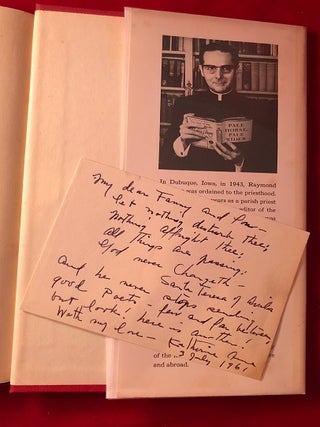 PALE
HORSE,
PALE
RIDER
In Dubuque, Iowa, in 1943, Raymond
was ordained to the priesthood.
ears as a parish priest
editor of the
My dear Fanny and Lon—
Let nothing disturb thee;
Nothing affright thee;
All things are passing:
God never changeth—
Santa Teresa of Avila
And he never stops sending
good poets— few and far between,
but look! here is another!
With my love— Katherine Anne
3 July 1961
of the
and abroad.